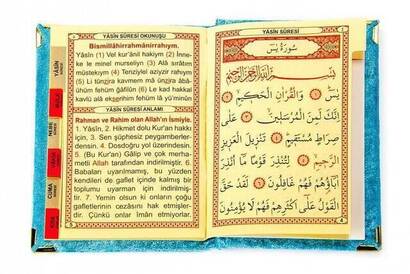 YÂSÎN SÛRESİ OKUNUŞU
Bismillâhirrahmânirrahıym.
Yâsîn (1) Vel kur'ânil hakiym (2) İnne-
ke le minel murseliyn (3) Alâ sırâtım
müstekıym (4) Tenziylel aziyzir rahıym
(5) Li tünzira kavmem mâ ünzira âbâ-
ühüm fehüm ğâfilûn (6) Le kad hakkal
kavlü alâ ekserihim fehüm lâ yü'minûn
YÂSÎN SÛRESİ ANLAMI
Rahman ve Rahim olan Allah'ın İsmiyle.
1. Yâsîn, 2. Hikmet dolu Kur'an hakkı
için, 3. Sen şüphesiz peygamberler-
densin. 4. Dosdoğru yol üzerindesin.
5. (Bu Kur'an) Gâlip ve çok merha-
metli Allah tarafından indirilmiştir. 6.
Babaları uyarılmamış, bu yüzden
kendileri de gaflet içinde kalmış bir
toplumu uyarman için indirilmiş-
tir. 7. Yemin olsun ki onların çoğu
gafletlerinin cezasını hak etmişler-
dir. Çünkü onlar îmân etmiyorlar.
YÂSÎN SÛRESİ
سُورَةُ يٰسٓ
بِسْمِ اللّٰهِ الرَّحْمٰنِ الرَّحِيمِ
يٰسٓ ﴿١﴾ وَالْقُرْاٰنِ الْحَكِيمِ ﴿٢﴾
اِنَّكَ لَمِنَ الْمُرْسَلِينَ ﴿٣﴾ عَلٰى
صِرَاطٍ مُسْتَقِيمٍ ﴿٤﴾ تَنْزِيلَ الْعَزِيزِ
الرَّحِيمِ ﴿٥﴾ لِتُنْذِرَ قَوْمًا مَٓا اُنْذِرَ
اٰبَٓاؤُ۬هُمْ فَهُمْ غَافِلُونَ ﴿٦﴾ لَقَدْ حَقَّ
الْقَوْلُ عَلٰٓى اَكْثَرِهِمْ فَهُمْ لَا يُؤْمِنُونَ
YÂSÎN
CUMA